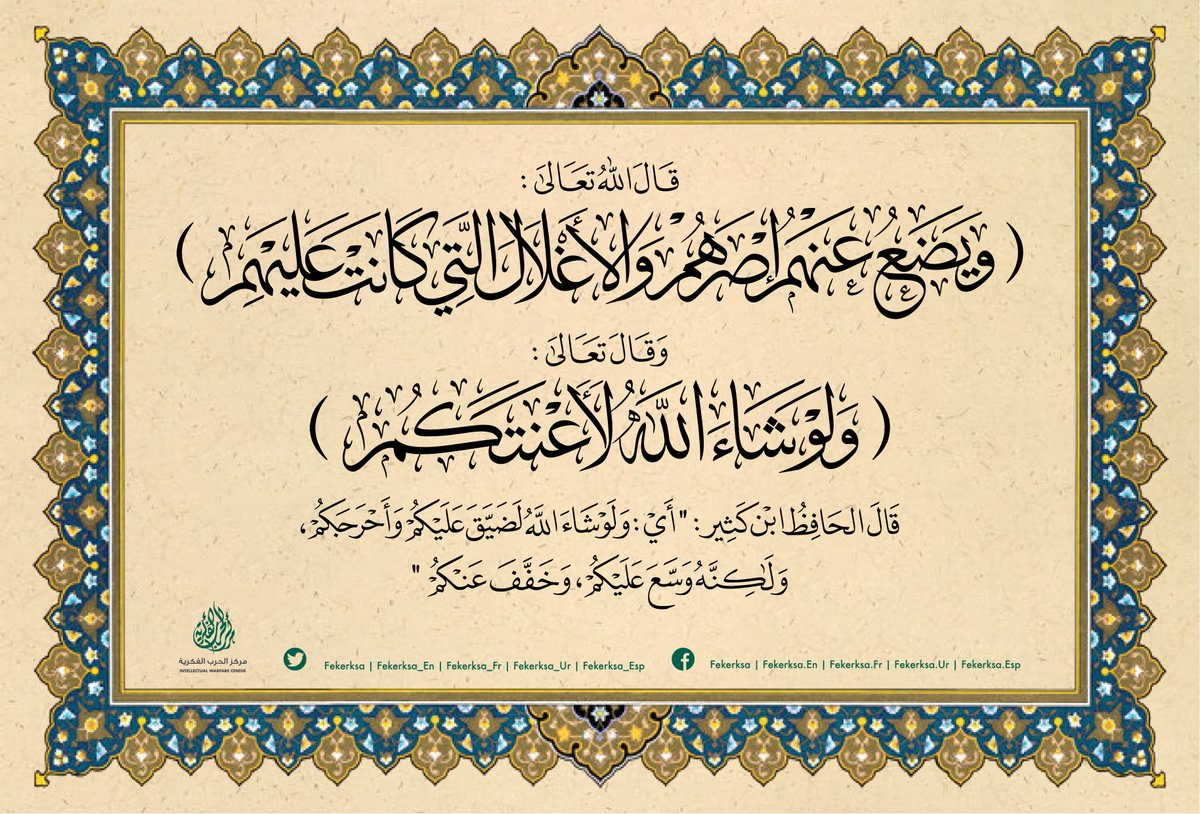 قَالَ اللهُ تَعَالَىٰ :
( وَيَضَعُ عَنْهُمْ إِصْرَهُمْ وَالأَغْلَالَ الَّتِي كَانَتْ عَلَيْهِمْ )
وَقَالَ تَعَالَىٰ :
( وَلَوْ شَاءَ اللَّهُ لَأَعْنَتَكُمْ )
قَالَ الحَافِظُ ابْن كَثِير : " أَيْ : وَلَوْ شَاءَ اللَّهُ لَضَيَّقَ عَلَيْكُمْ وَأَحْرَجَكُمْ ،
وَلَٰكِنَّهُ وَسَّعَ عَلَيْكُمْ ، وَخَفَّفَ عَنْكُمْ "
مركز الحرب الفكرية
INTELLECTUAL WARFARE CENTER
Fekerksa | Fekerksa_En | Fekerksa_Fr | Fekerksa_Ur | Fekerksa_Esp
Fekerksa | Fekerksa.En | Fekerksa.Fr | Fekerksa.Ur | Fekerksa.Esp